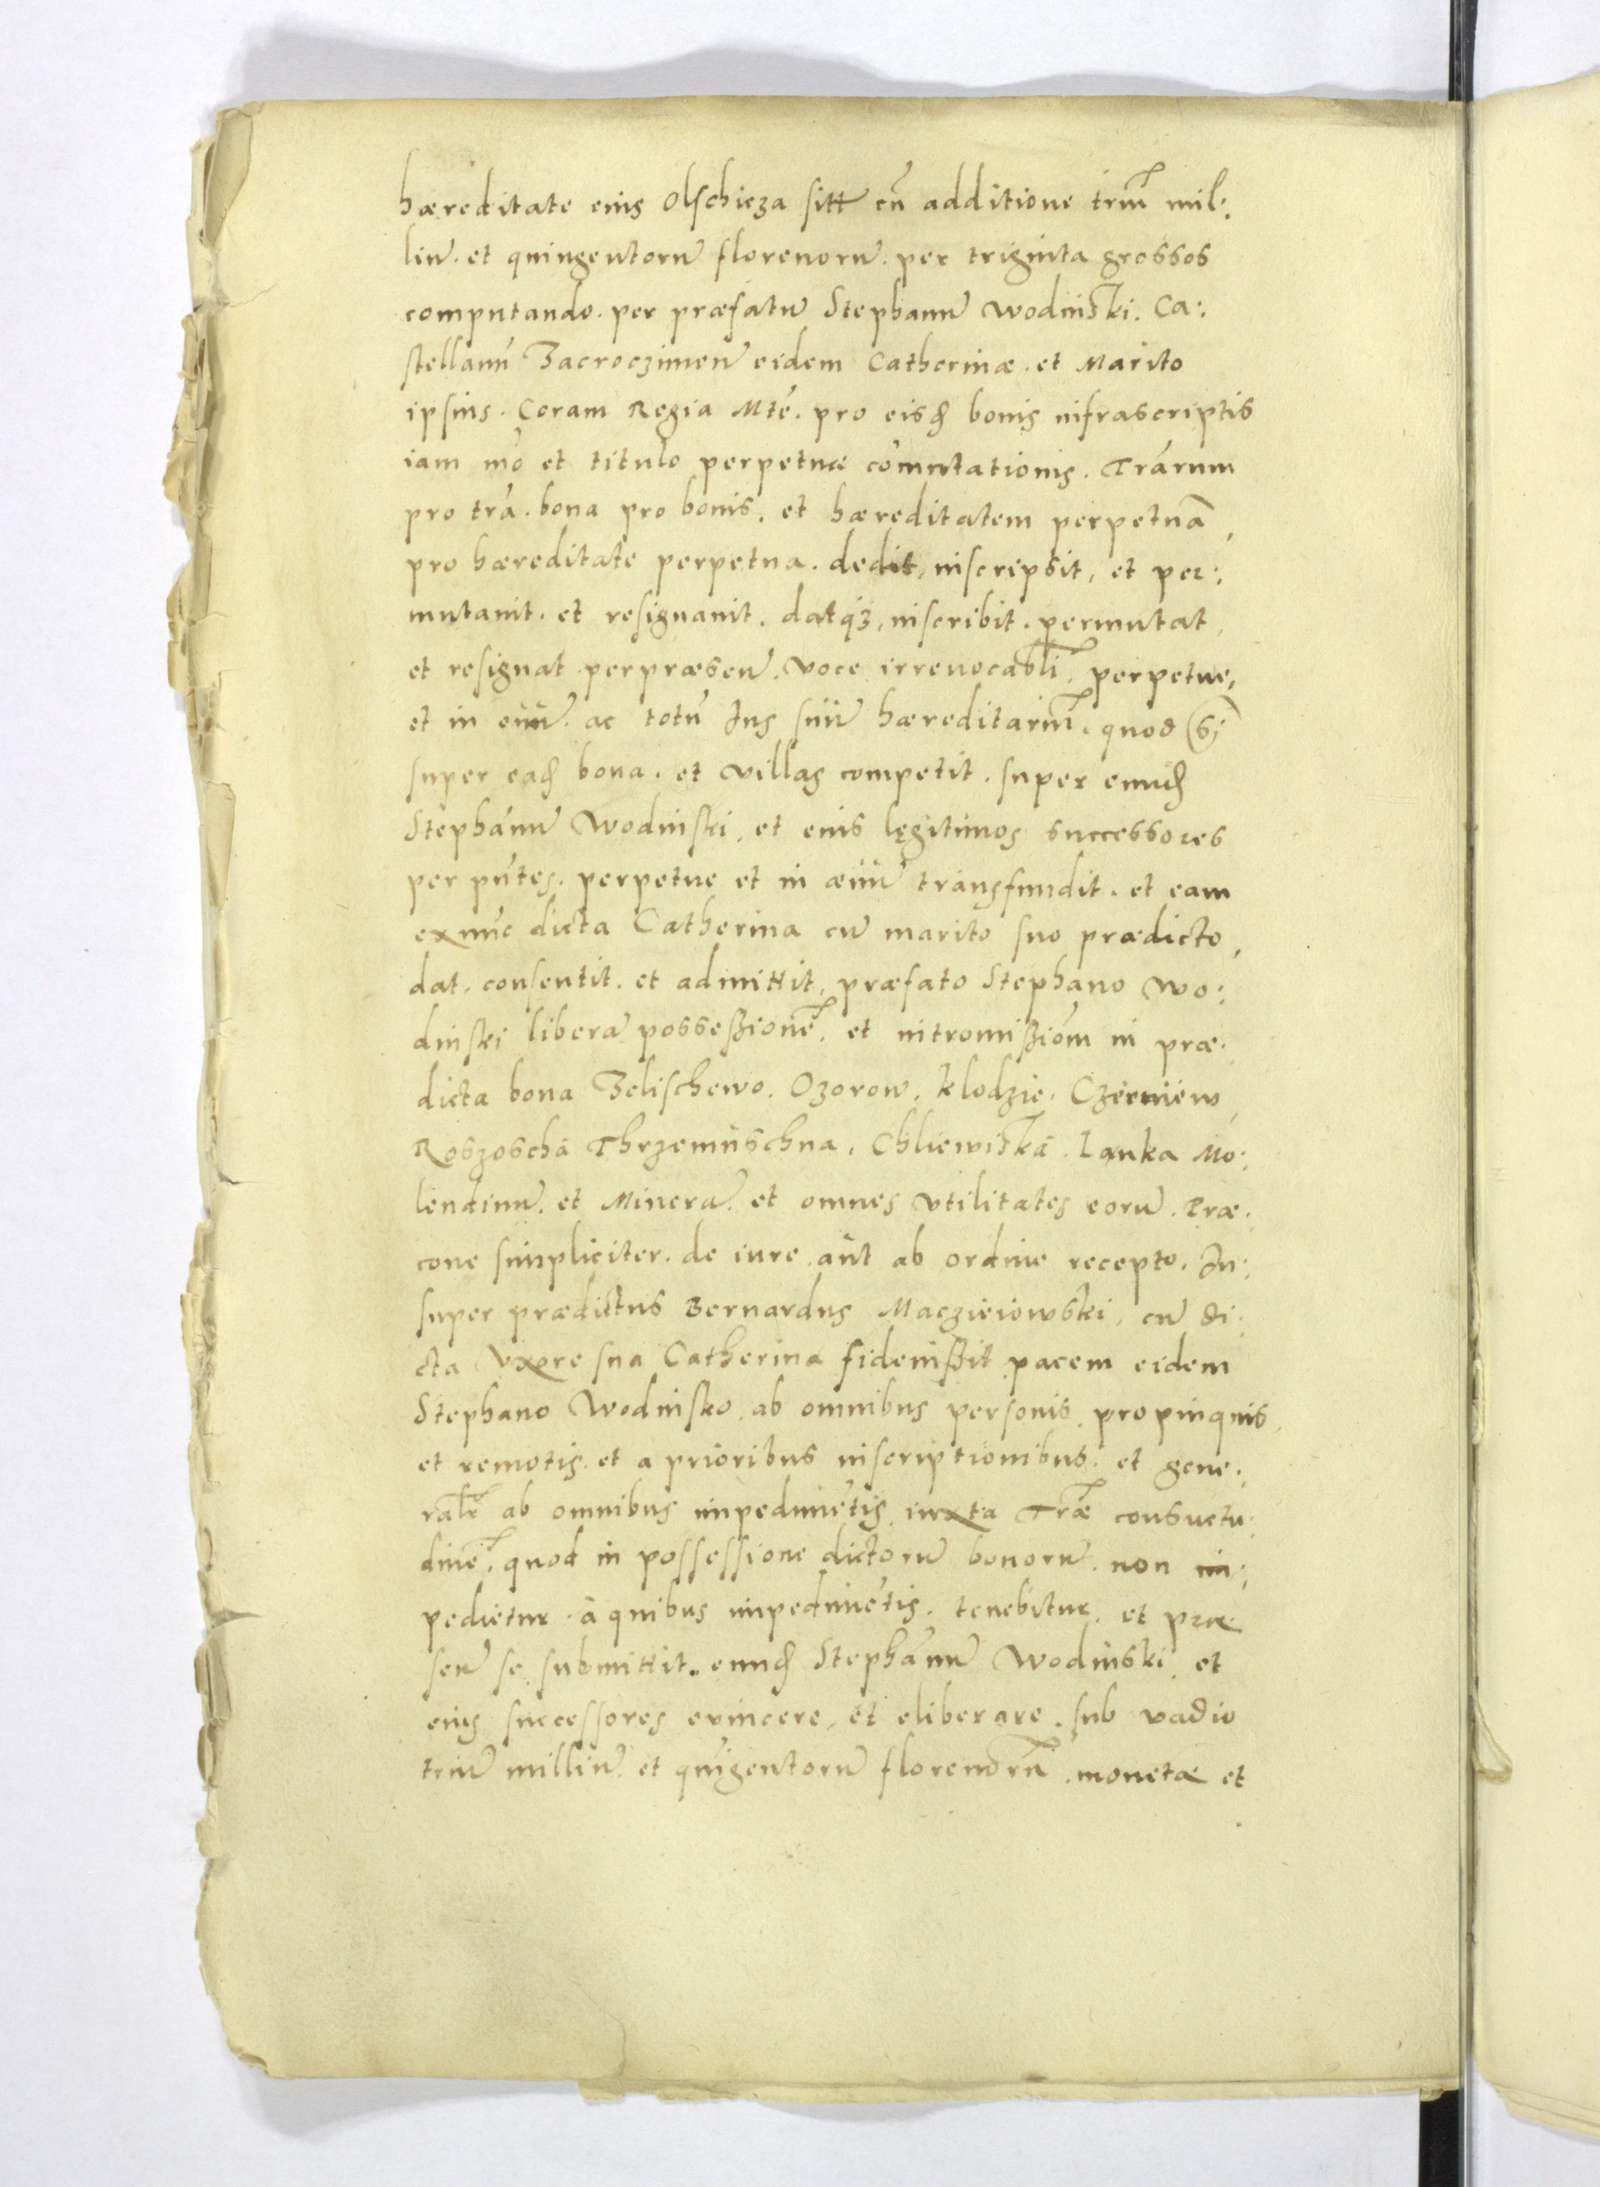 hæreditate eius Olschicza sitt cū additione triū mil:
liū et quingentorū florenorū. per triginta grossos
computando. per præfatū Stephanū Wodinski. Ca:
stellanū Zacroczimeñ eidem Catherinæ. et Marito
ipsius. Coram Regia Mte. pro eisđ bonis infrascriptis
iam mō et titulo perpetuæ comutationis. Trārum
pro trā. bona pro bonis. et hæreditatem perpetuā,
pro hæreditate perpetua. dedit, inscripsit, et per:
mutauit. et resignauit. datq3, inscribit. permutat,
et resignat per præseñ. voce irreuocabli. perpetue,
et in euū. ac totū Jus suū hæreditariū. quod si
super eađ bona. et villas competit. super eunđ
Stephanū Wodinski, et eius lęgitimos successores
per pntes. perpetue et in æuū transfundit. et eam
exnūc dicta Catherina cū marito suo prædicto,
dat. consentit. et admittit, præfato Stephano Wo:
dinski liberā possessionē. et intromissiōm in præ:
dicta bona Zelischewo. Ozorow. Klodzie. Czerniew,
Roszoscha Thrzemuschna. Chliewiska. Lanka Mo:
lendinū. et Minerā. et omnes vtilitates eorū. Præ:
cone simpliciter. de iure aut ab ordine recepto. In:
super prædictus Bernardus Maczieiowski, cū di:
cta vxore sua Catherina fideiussit pacem eidem
Stephano Wodinsko. ab omnibus personis, propinquis
et remotis. et a prioribus inscriptionibus. et gene:
ralr ab omnibus impedimētis, iuxta Træ consuetu:
dinē. quod in possessione dictorū bonorū. non im:
pedietur. a quibus impedimētis. tenebitur. et præ
señ se submittit. eunđ Stephanū Wodinski, et
eius successores euincere, et eliberare. sub vadio
triū milliū et quigentorū florenorū. monetæ et